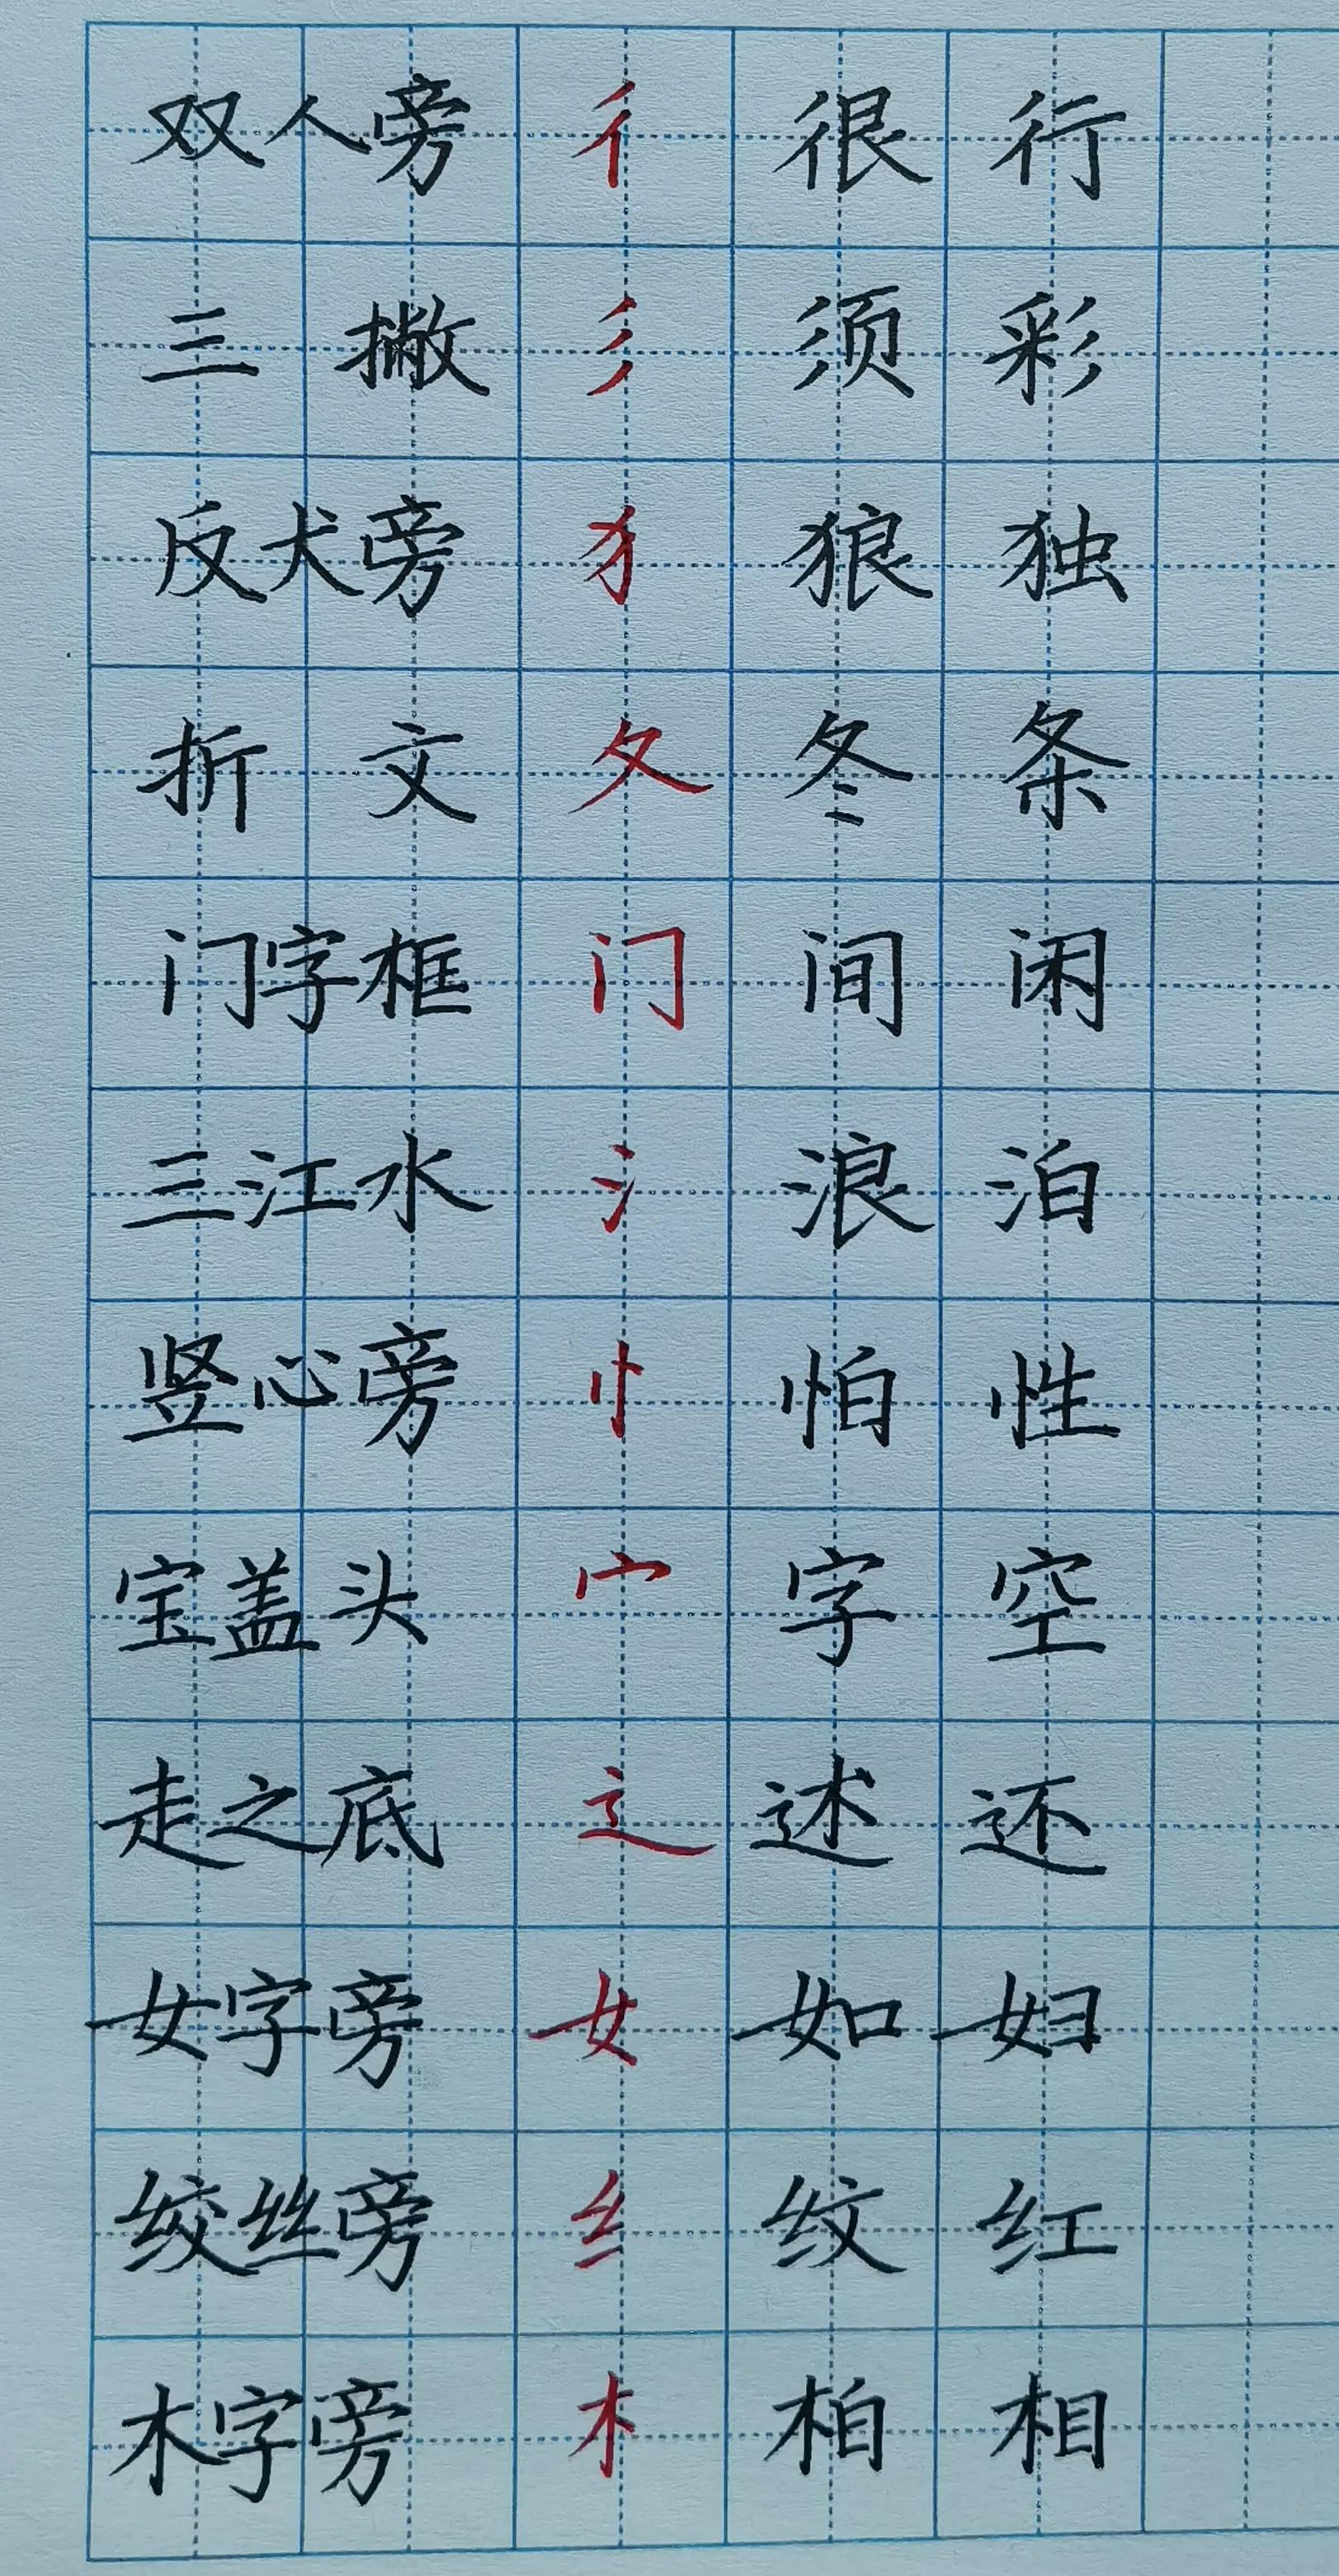 双人旁 彳 很 行
三撇 彡 须 彩
反犬旁 犭 狼 独
折文 夂 冬 条
门字框 门 间 闲
三江水 氵 浪 泊
竖心旁 忄 怕 性
宝盖头 宀 字 空
走之底 辶 述 还
女字旁 女 如 妇
绞丝旁 纟 纹 红
木字旁 木 柏 相